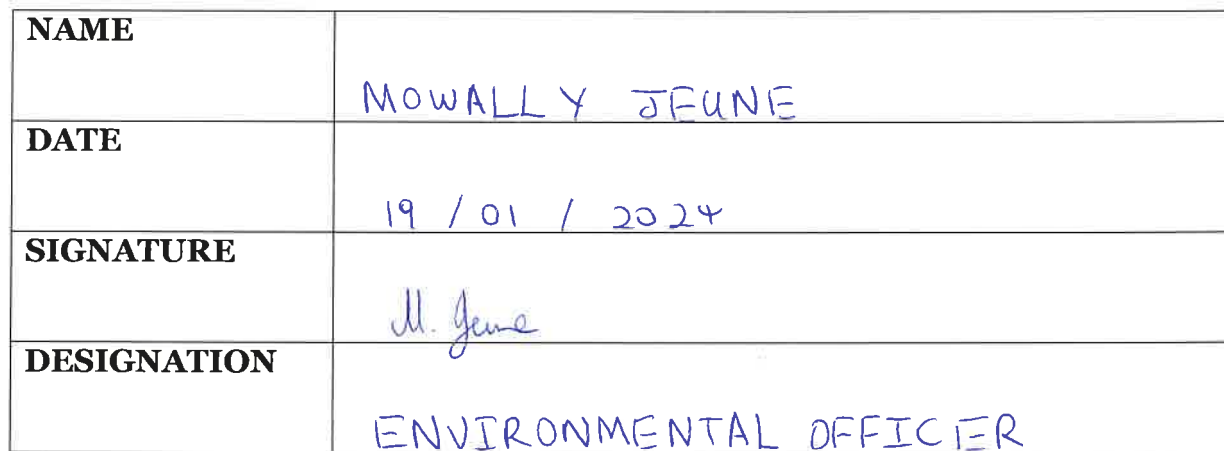 NAME
MOWALLY JEUNE
DATE
19 / 01 / 2024
SIGNATURE
M. Jeune
DESIGNATION
ENVIRONMENTAL OFFICER